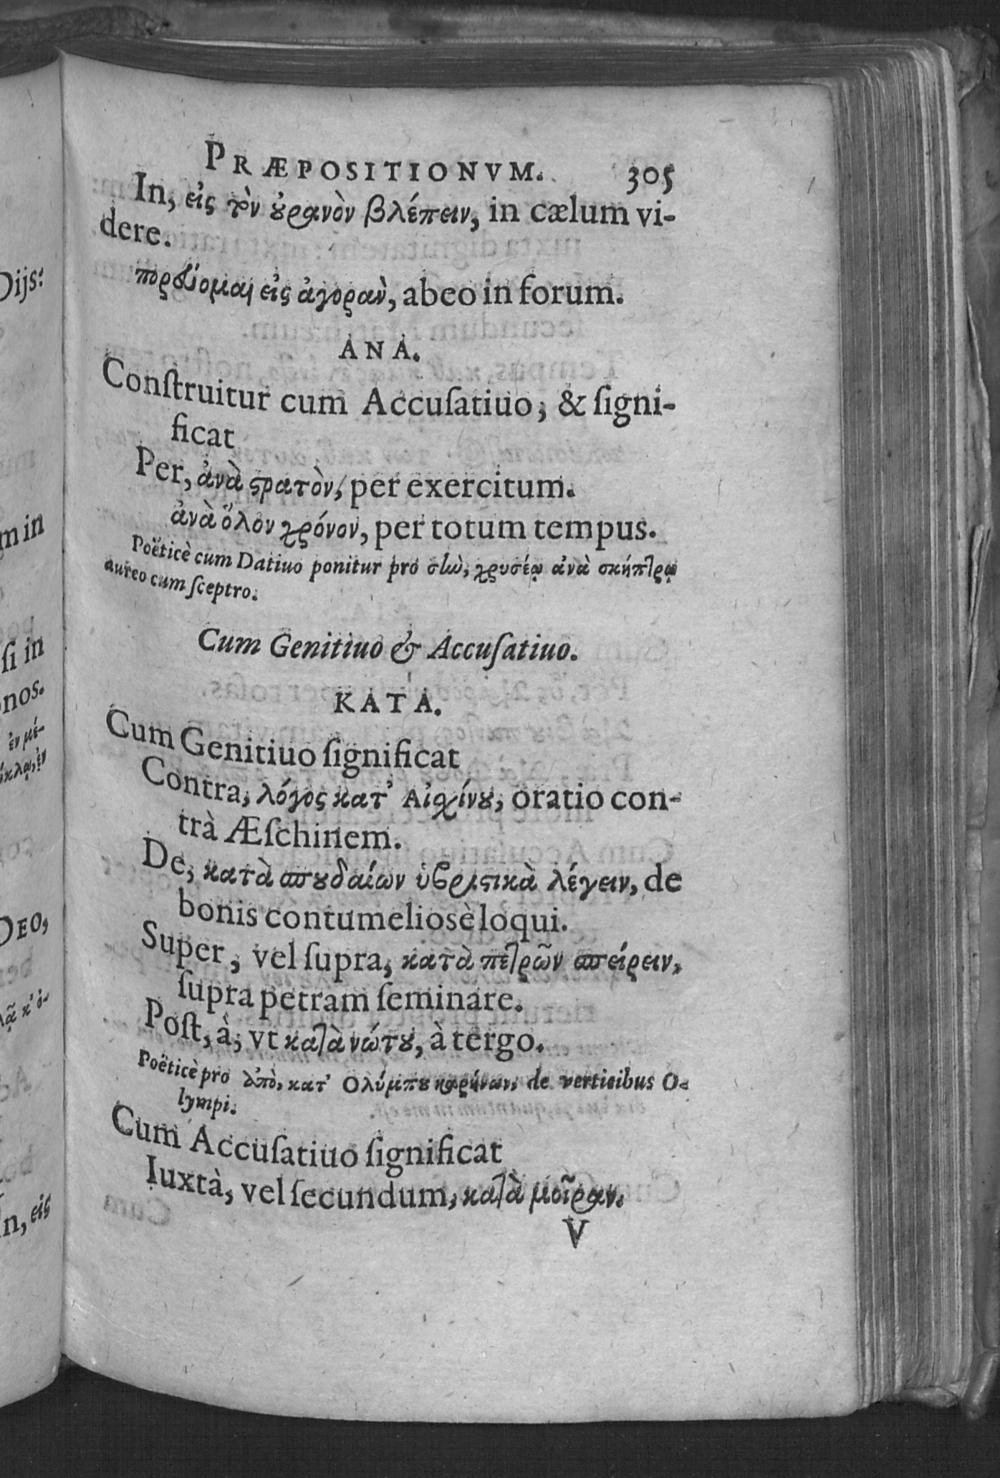 PRÆPOSITIONVM. 305
In, εἰς τὸν οὐρανὸν βλέπειν, in cælum vi-
dere.
πορεύομαι εἰς ἀγορὰν, abeo in forum.
ΑΝΑ.
Construitur cum Accusatiuo, & signi-
ficat
Per, ἀνὰ στρατὸν, per exercitum.
ἀνὰ ὅλον χρόνον, per totum tempus.
Poëticè cum Datiuo ponitur pro σὺν, χρυσέῳ ἀνὰ σκήπτρῳ
aureo cum sceptro.
Cum Genitiuo & Accusatiuo.
ΚΑΤΑ.
Cum Genitiuo significat
Contra, λόγος κατ' Αἰσχίνου, oratio con-
trà Æschinem.
De, κατὰ σπουδαίων ὑβριστικὰ λέγειν, de
bonis contumeliosè loqui.
Super, vel supra, κατὰ πετρῶν σπείρειν,
supra petram seminare.
Post, à, vt κατὰ νώτου, à tergo.
Poëticè pro ἀπὸ, κατ' Ολύμπου καρήνων, de verticibus O-
lympi.
Cum Accusatiuo significat
Iuxtà, vel secundum, κατὰ μοῖραν.
V
Dijs:
m in
si in
nos.
ἐν μέ-
DEO,
n, εἰς